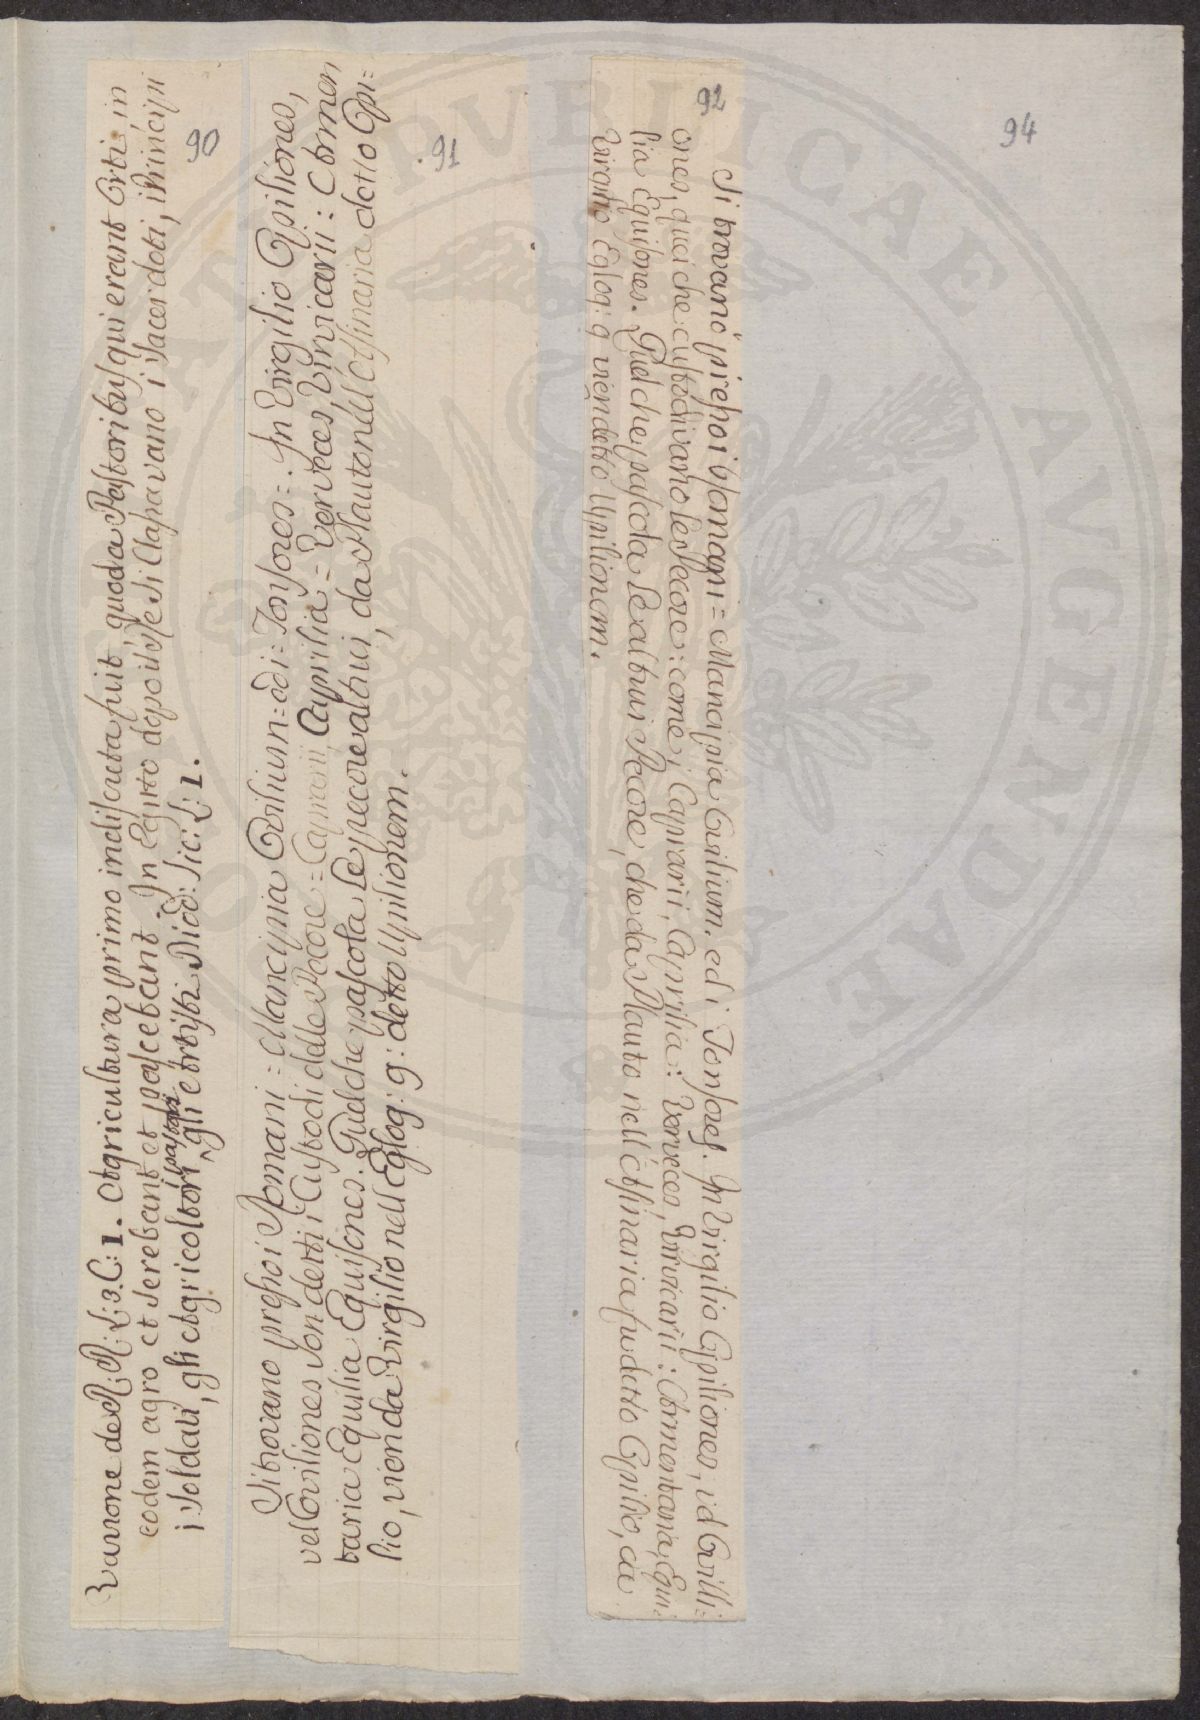 90
Varrone de R: R: L: 3. C: 1. Agricultura primo indiscreta fuit, quoda Pastoribus qui erant Orti in
eodem agro et serebant et pascebant. In Egitto dopo
i Soldati, gli Agricoltori, i pastori gli Diod: Sic: L: 1.
91
Si trovano presso i Romani = Mancipia Ovilium = ed i = Tonsores = : In Virgilio Opiliones,
vel Oviliones son detti i Custodi delle Pecore = Caprarii, Caprilia = Verveces, Vervicarii : Armen
taria Equilia Equisones. Quel che pascola le pecore altrui, da Plauto nell'Assinaria detto Opi=
lio, vien da Virgilio nell'Eglog: 9: detto Upilionem.
92
Si trovano presso i Romani = Mancipia Ovilium. ed i Tonsores. In Virgilio Opiliones, id Ovilli=
ones, quei che custodivano le Pecore: come i Caprarii, Caprilia: Verveces, Vervicarii: Armentaria, Equi=
lia Equisones. Quel che pascola le altrui Pecore, che da Plauto nell'Assinaria fu detto Opilio, da
Virgilio Eglog: 9 vien detto Upilionem.
94
PUBLICAE AVGENDAE